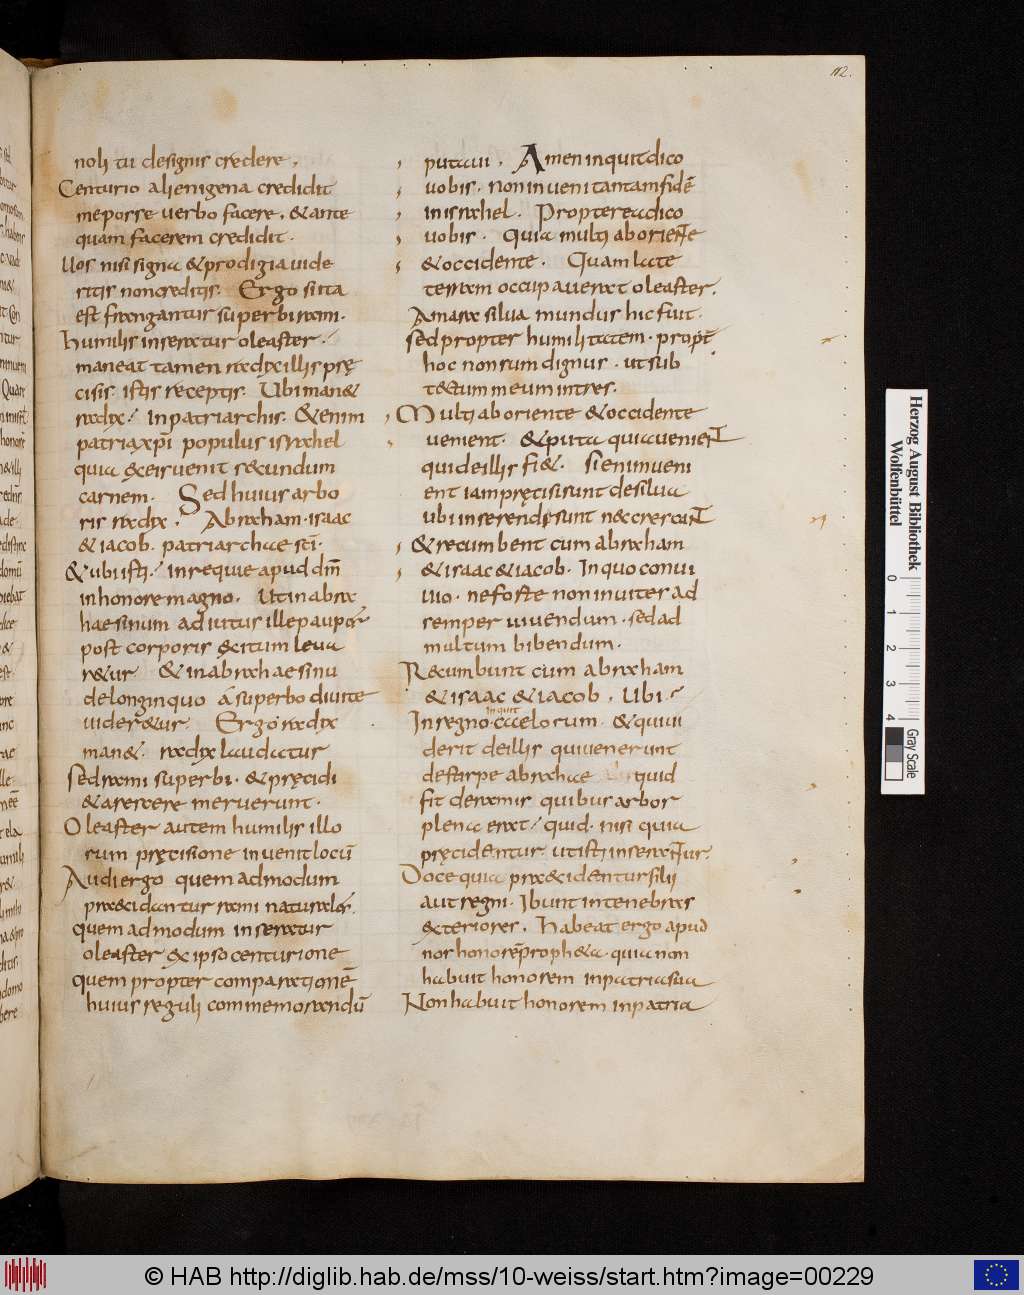 112.
noli tu designis credere,
Centurio alienigena credidit
me posse verbo facere, & ante
quam facerem credidit.
Uos nisi signa & prodigia uide
ritis non creditis. Ergo sicta
est frangantur superbi rami.
humilis inseratur oleaster.
maneat tamen radix illis prę
cisis. istis receptis. Ubi man&
radix? In patriarchis. &enim
patria xp̄i populus israhel
quia ex eis uenit secundum
carnem. Sed huius arbo
ris radix, Abraham. isaac
& iacob. patriarchae sc̄i.
& ubi isti? in requie apud dm̄
in honore magno. Ut in abra
hae sinum adiutus ille pauper
post corporis exitum leua
r&ur & in abrahae sinu
de longinquo a superbo diuite
uider&ur. Ergo radix
man&. radix laudatur
Sed rami superbi. & pręcidi
& arescere meruerunt.
Oleaster autem humilis illo
rum pręcisione inuenit locū
Audi ergo quem admodum
praecidantur rami naturales.
quem admodum inseratur
oleaster ex ipso centurione
quem propter comparationē
huius reguli commemorandū
putaui. Amen inquit dico
uobis. non inueni tantam fidē
in israhel. Propterea dico
uobis. Quia multi ab oriente
& occidente. Quam late
terram occupauerat oleaster.
Amara silua mundus hic fuit.
sed propter humilitatem. propt̄
hoc non sum dignus. ut sub
t&um meum intres.
Multi ab oriente & occidente
uenient. & puta quia uenient
quid e illis fi&. Si enim ueni
ent iam pręcisi sunt de silua
ubi inserendi sunt ne crescant
& recumbent cum abraham
& isaac & iacob. In quo conui
uio. ne forte non inuites ad
semper uiuendum. sed ad
multum bibendum.
Recumbunt cum abraham
& isaac & iacob. Ubi?
inquit
In regno caelorum. & quid
erit de illis qui uenerunt
de stirpe abrahae quid
fit de ramis quibus arbor
plena erat? quid. nisi quia
pręcidentur. ut isti inserantur.
Doce quia praecidentur filii
aut regni. Ibunt in tenebras
exteriores. Habeat ergo apud
nos honorē proph&a. quia non
habuit honorem in patria sua
Non habuit honorem in patria
Herzog August Bibliothek
Wolfenbüttel
0 1 2 3 4
Gray Scale
© HAB http://diglib.hab.de/mss/10-weiss/start.htm?image=00229